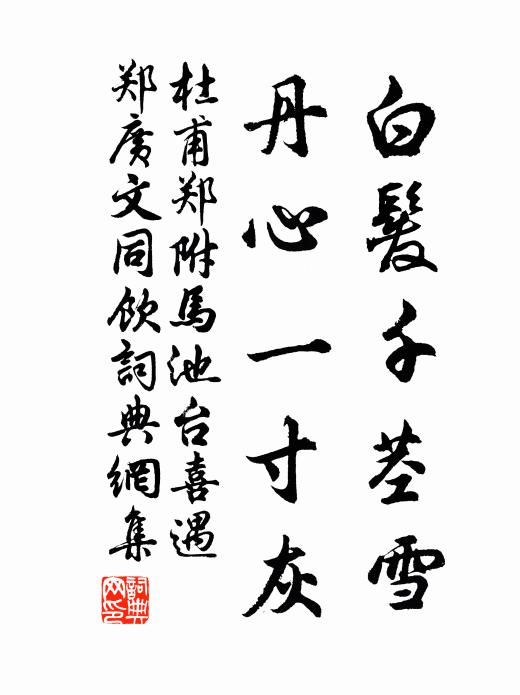 白髮千茎雪
丹心一寸灰
杜甫郑附馬池台喜遇
郑廣文同飲詞典網集
詞典网印